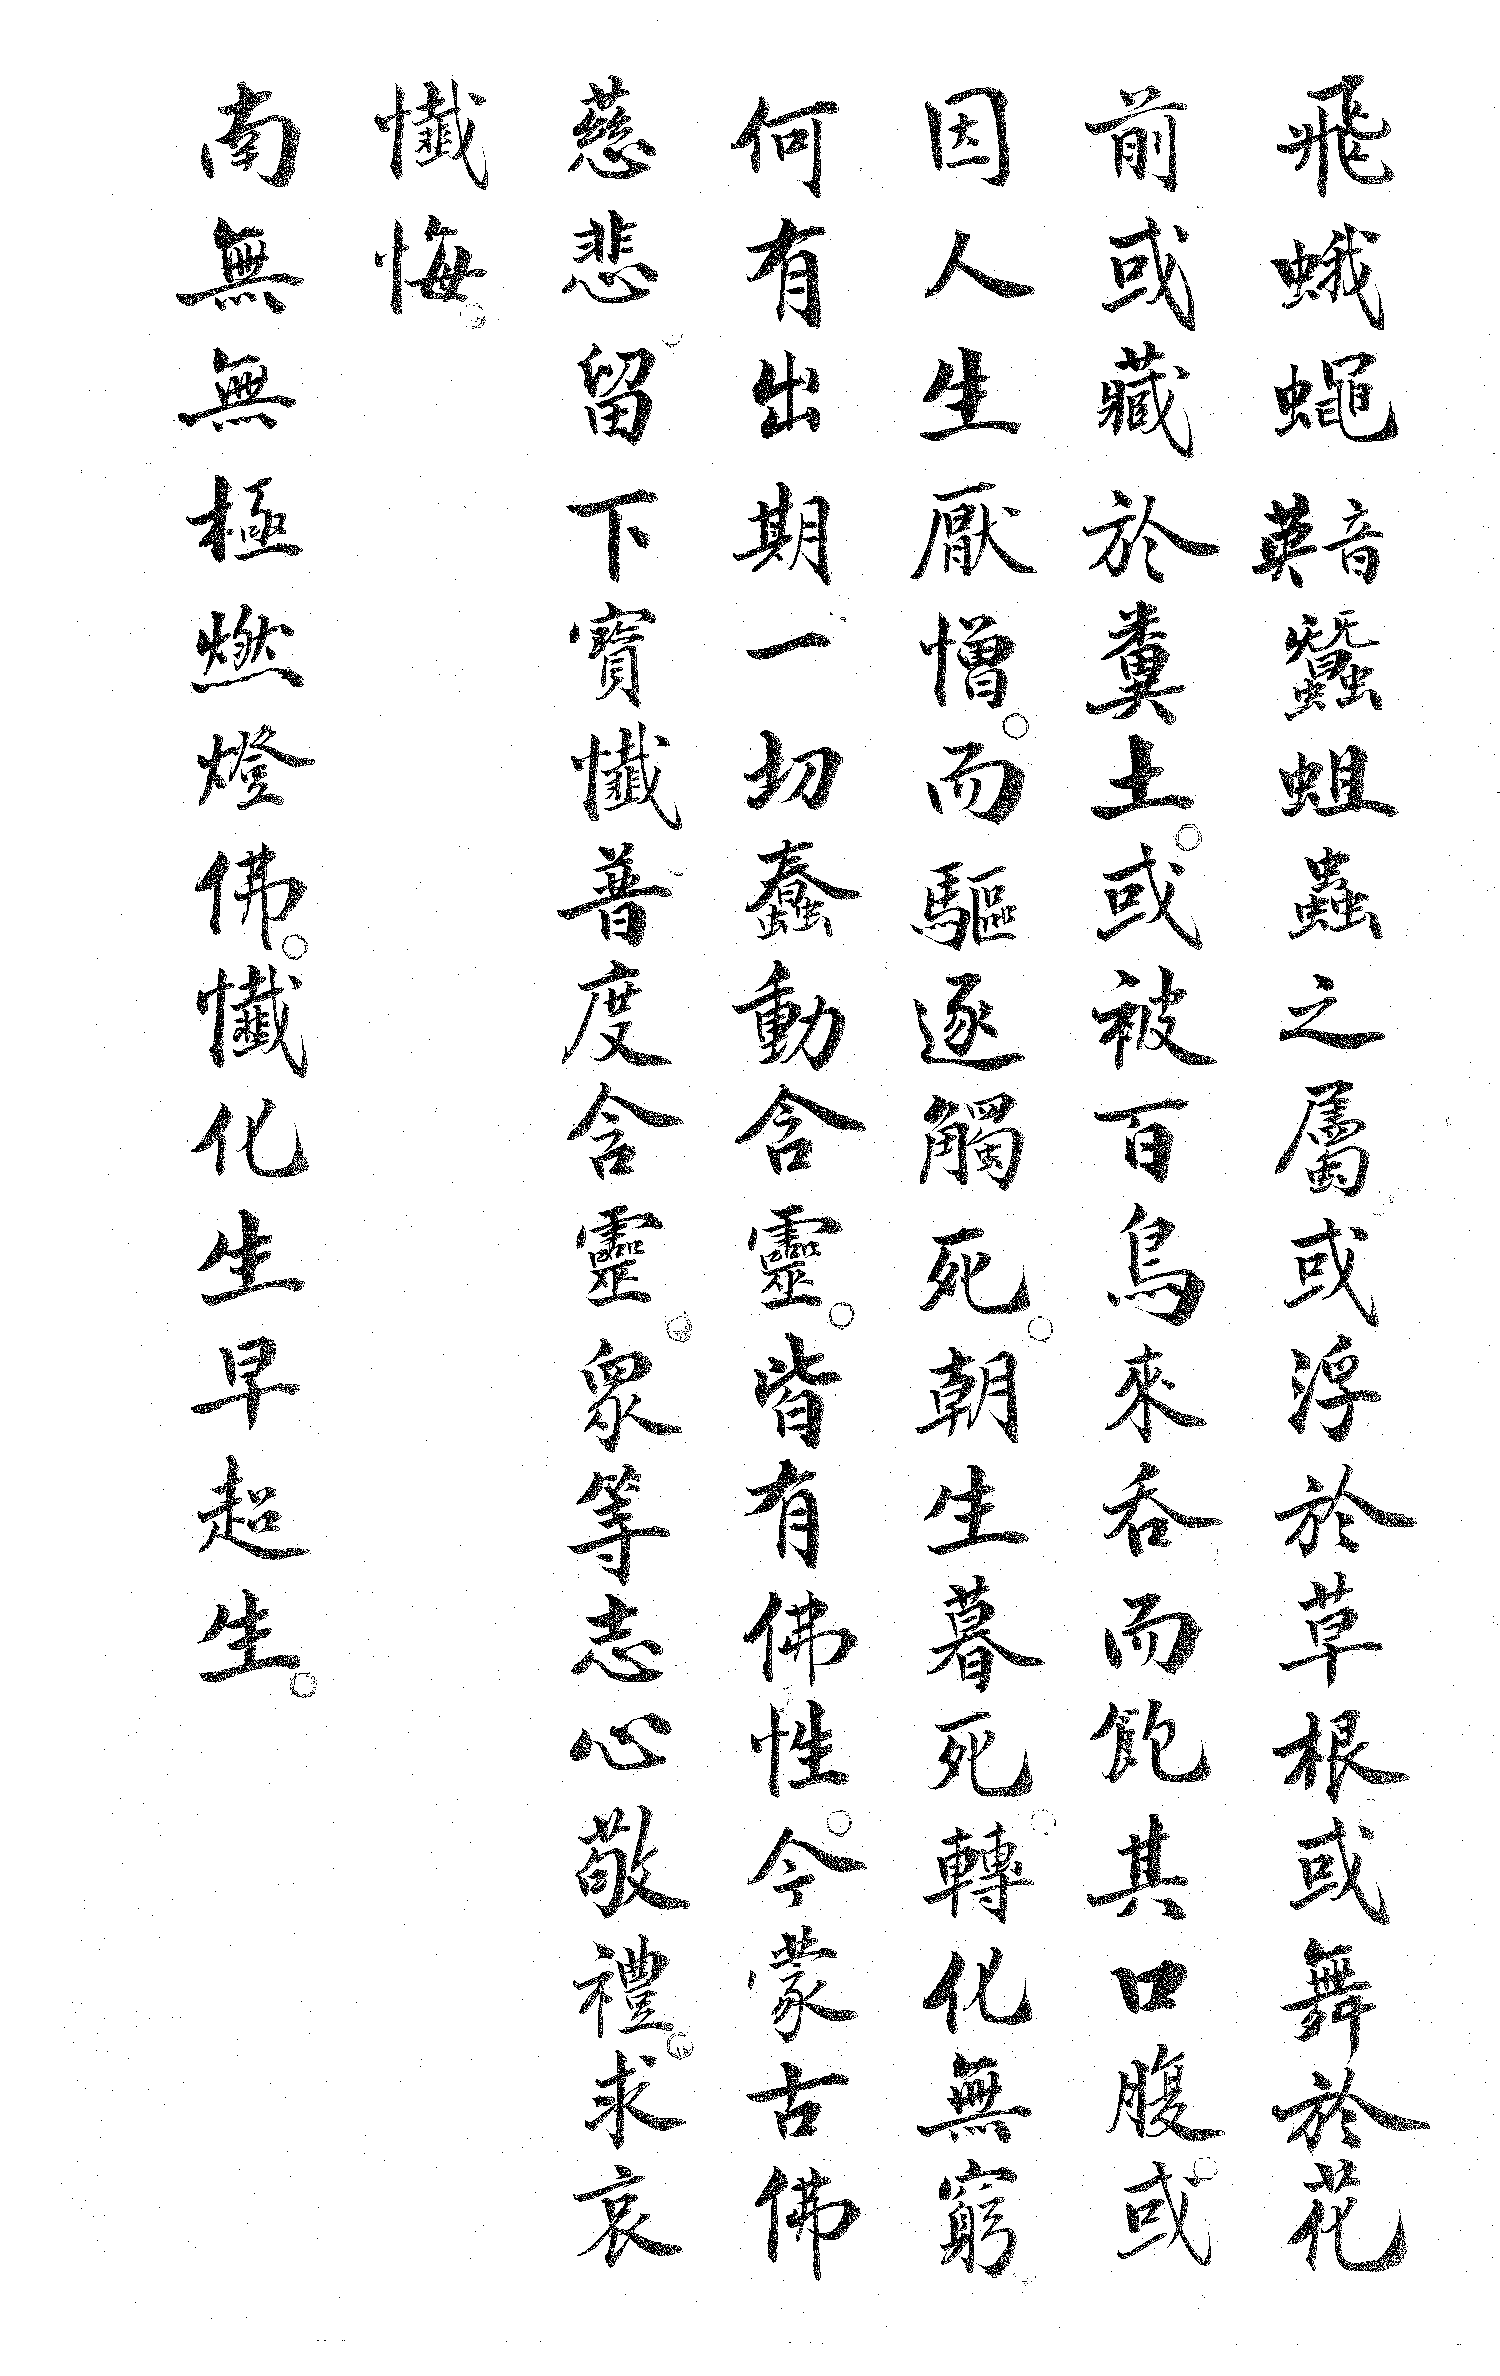 飛蛾蠅音英蠶蛆蟲之屬或浮於草根或舞於花
前或藏於糞土。或被百鳥來吞而飽其口腹。或
因人生厭憎。而驅逐觸死。朝生暮死。轉化無窮
何有出期一切蠢動含靈。皆有佛性。今蒙古佛
慈悲。留下寶懺普度含靈。眾等志心敬禮。求哀
懺悔。
南無無極燃燈佛。懺化生早超生。